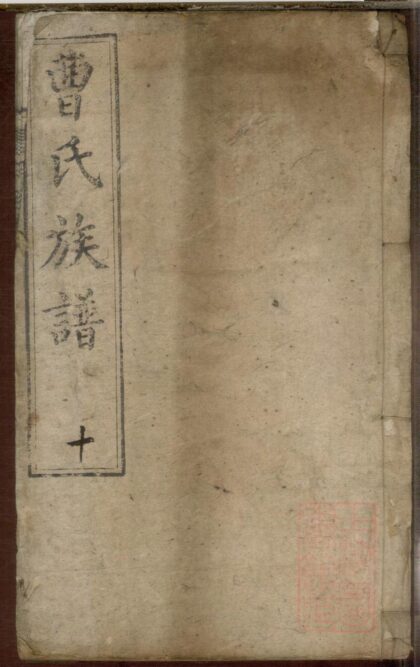 曹氏族譜
十